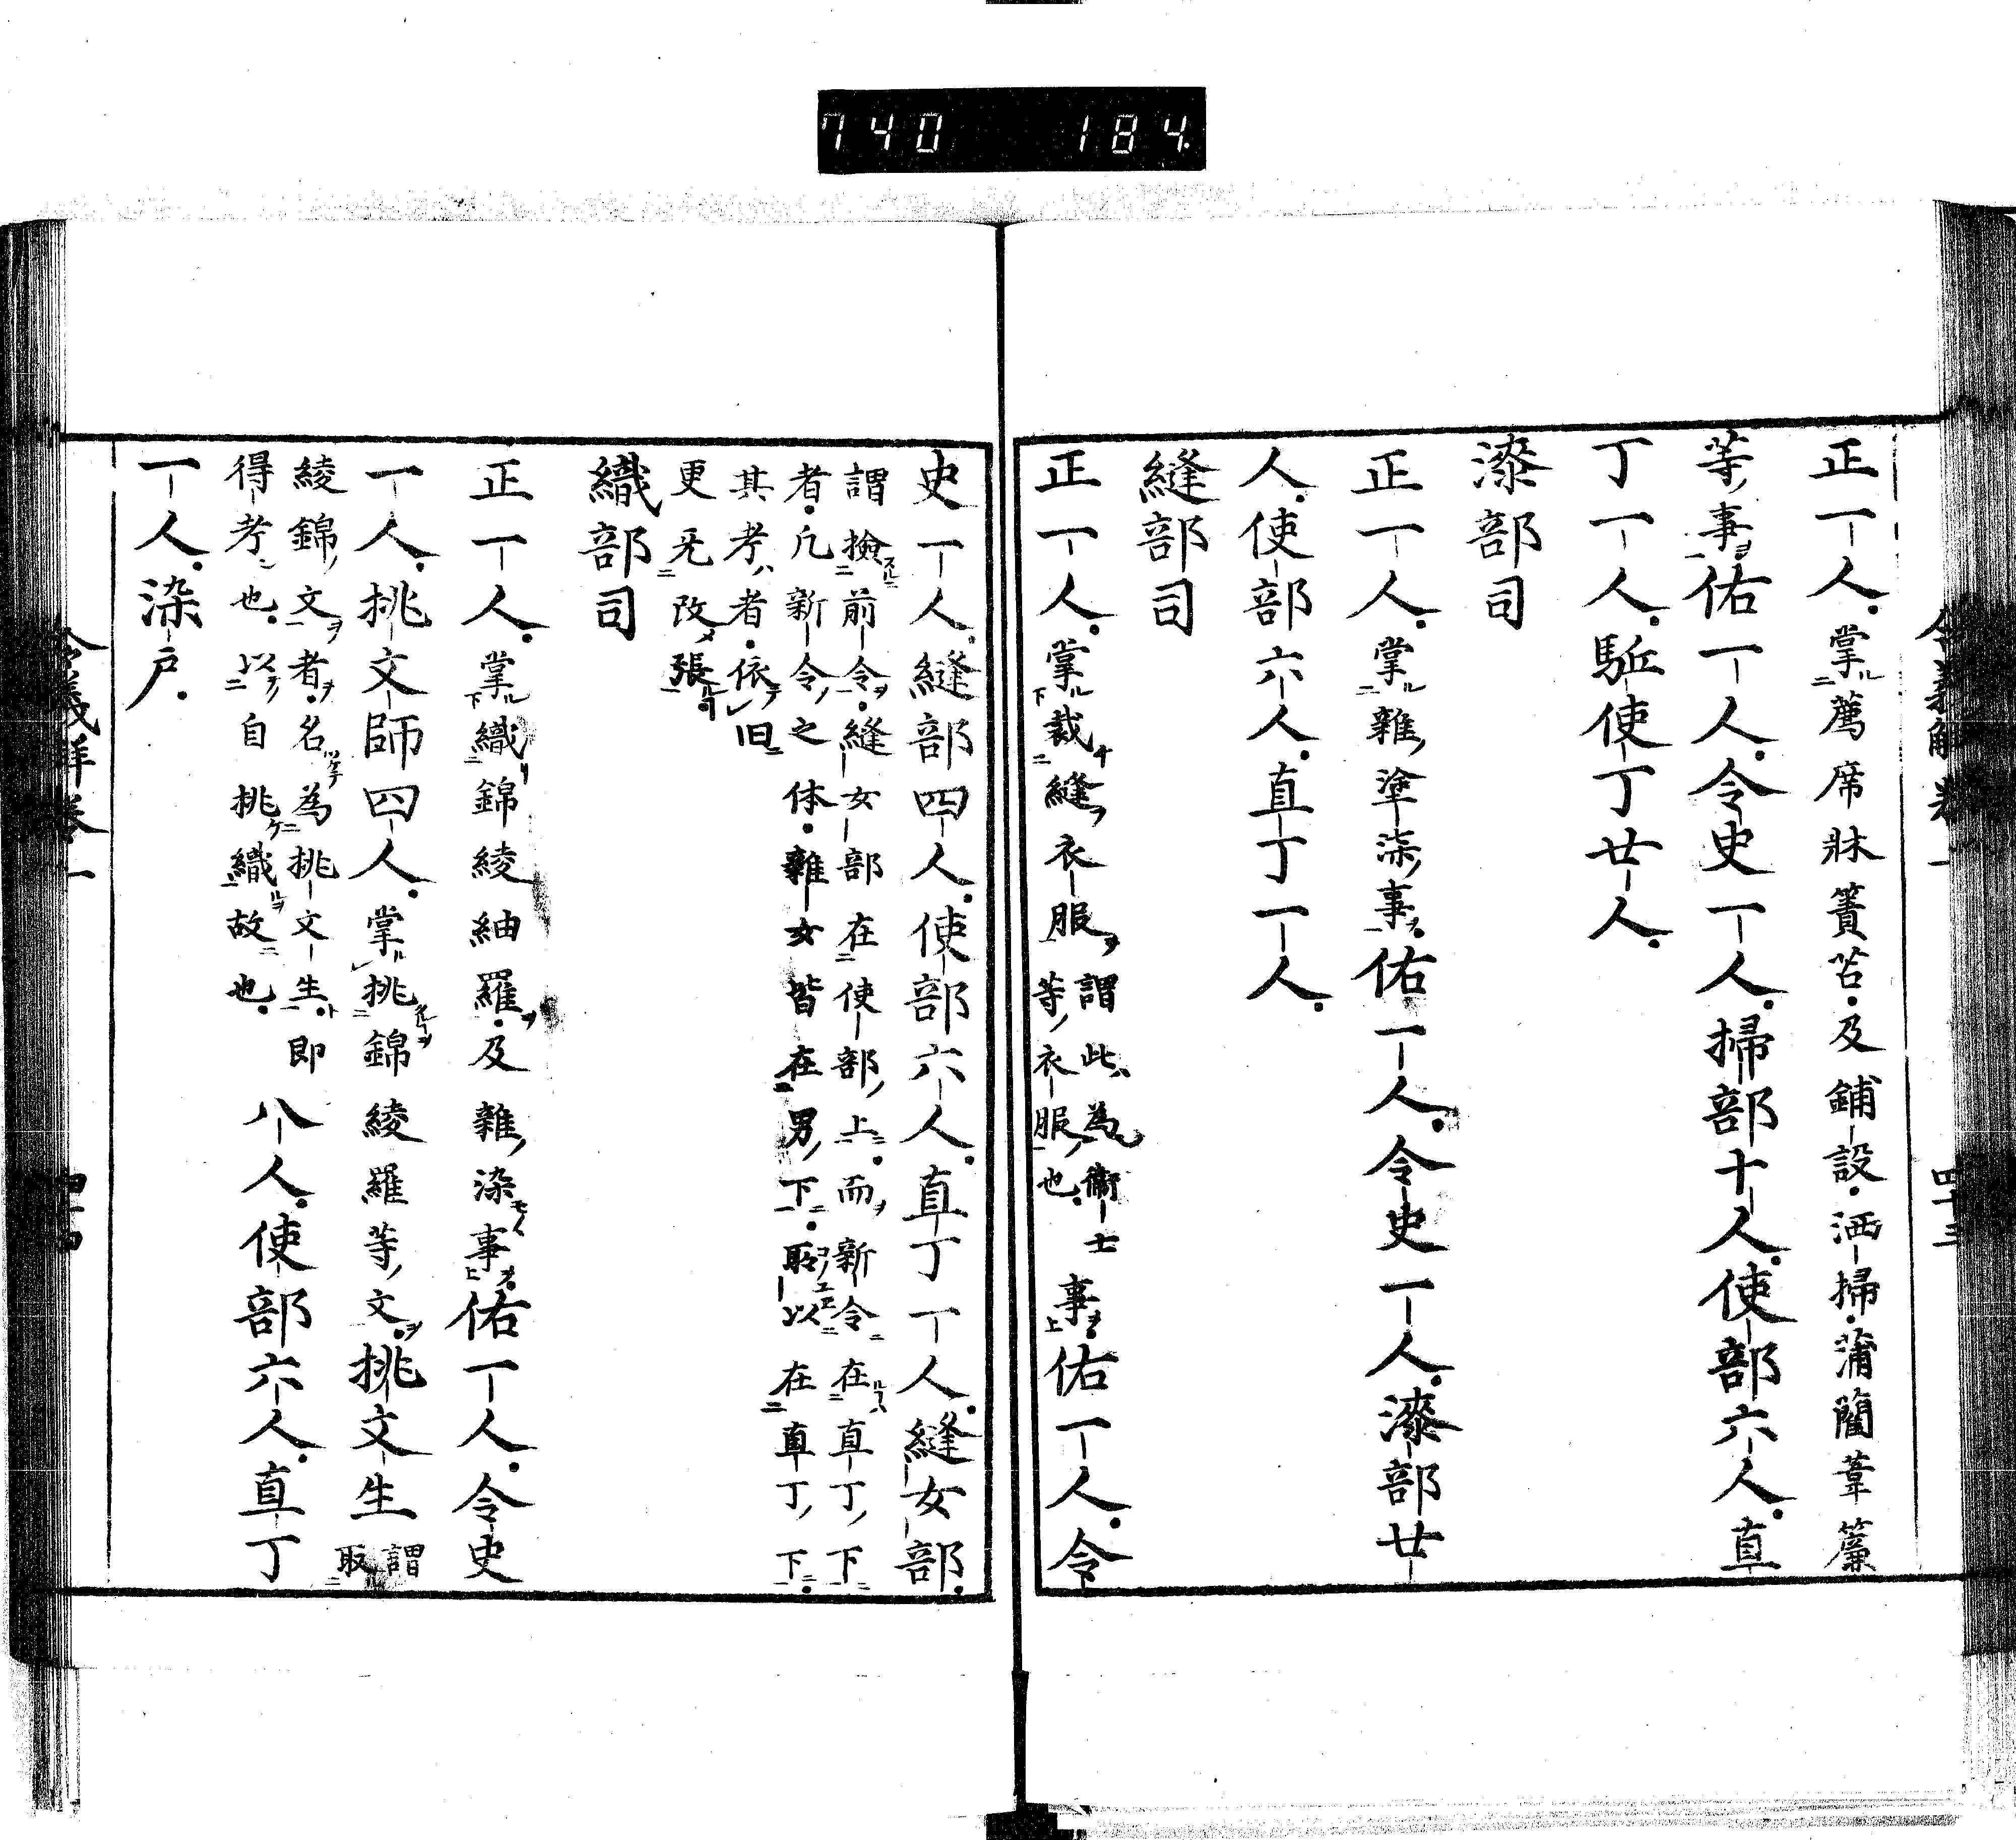 740 184
令義解卷一 四十三
正一人掌薦席牀簀苫及鋪設洒掃蒲藺葦簾
等事佑一人令史一人掃部十人使部六人直
丁一人駈使丁廿人
漆部司
正一人掌雜塗漆事佑一人令史一人漆部廿
人使部六人直丁一人
縫部司
正一人掌裁縫衣服謂此為衛士等衣服也事佑一人令
史一人縫部四人使部六人直丁一人縫女部
謂撿前令縫女部在使部上而新令在直丁下
者凡新令之体雜女皆在男下所以在直丁下
其考者依旧
更无改張
織部司
正一人掌織錦綾紬羅及雜染事佑一人令史
一人挑文師四人掌挑錦綾羅等文挑文生謂取
綾錦文者名為挑文生即
得考也以自挑織故也
八人使部六人直丁
一人染戸
令義解卷一 四十四